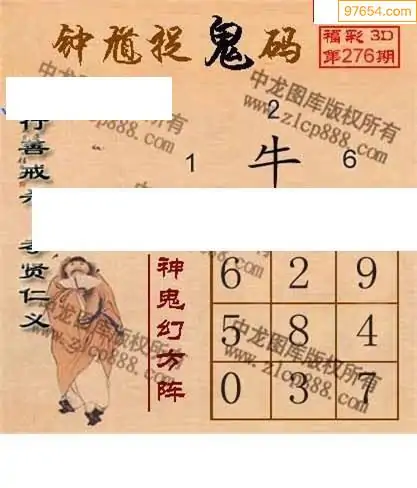 97654.com
钟馗捉鬼码
福彩3D
第276期
中龙图库版权所有
www.zlcp888.com
行善戒
孝贤仁义
2
1 牛 6
中龙图库版权所有
www.zlcp888.com
神鬼幻方阵
6 2 9
5 8 4
0 3 7
中龙图库版权所有
www.zlcp888.com